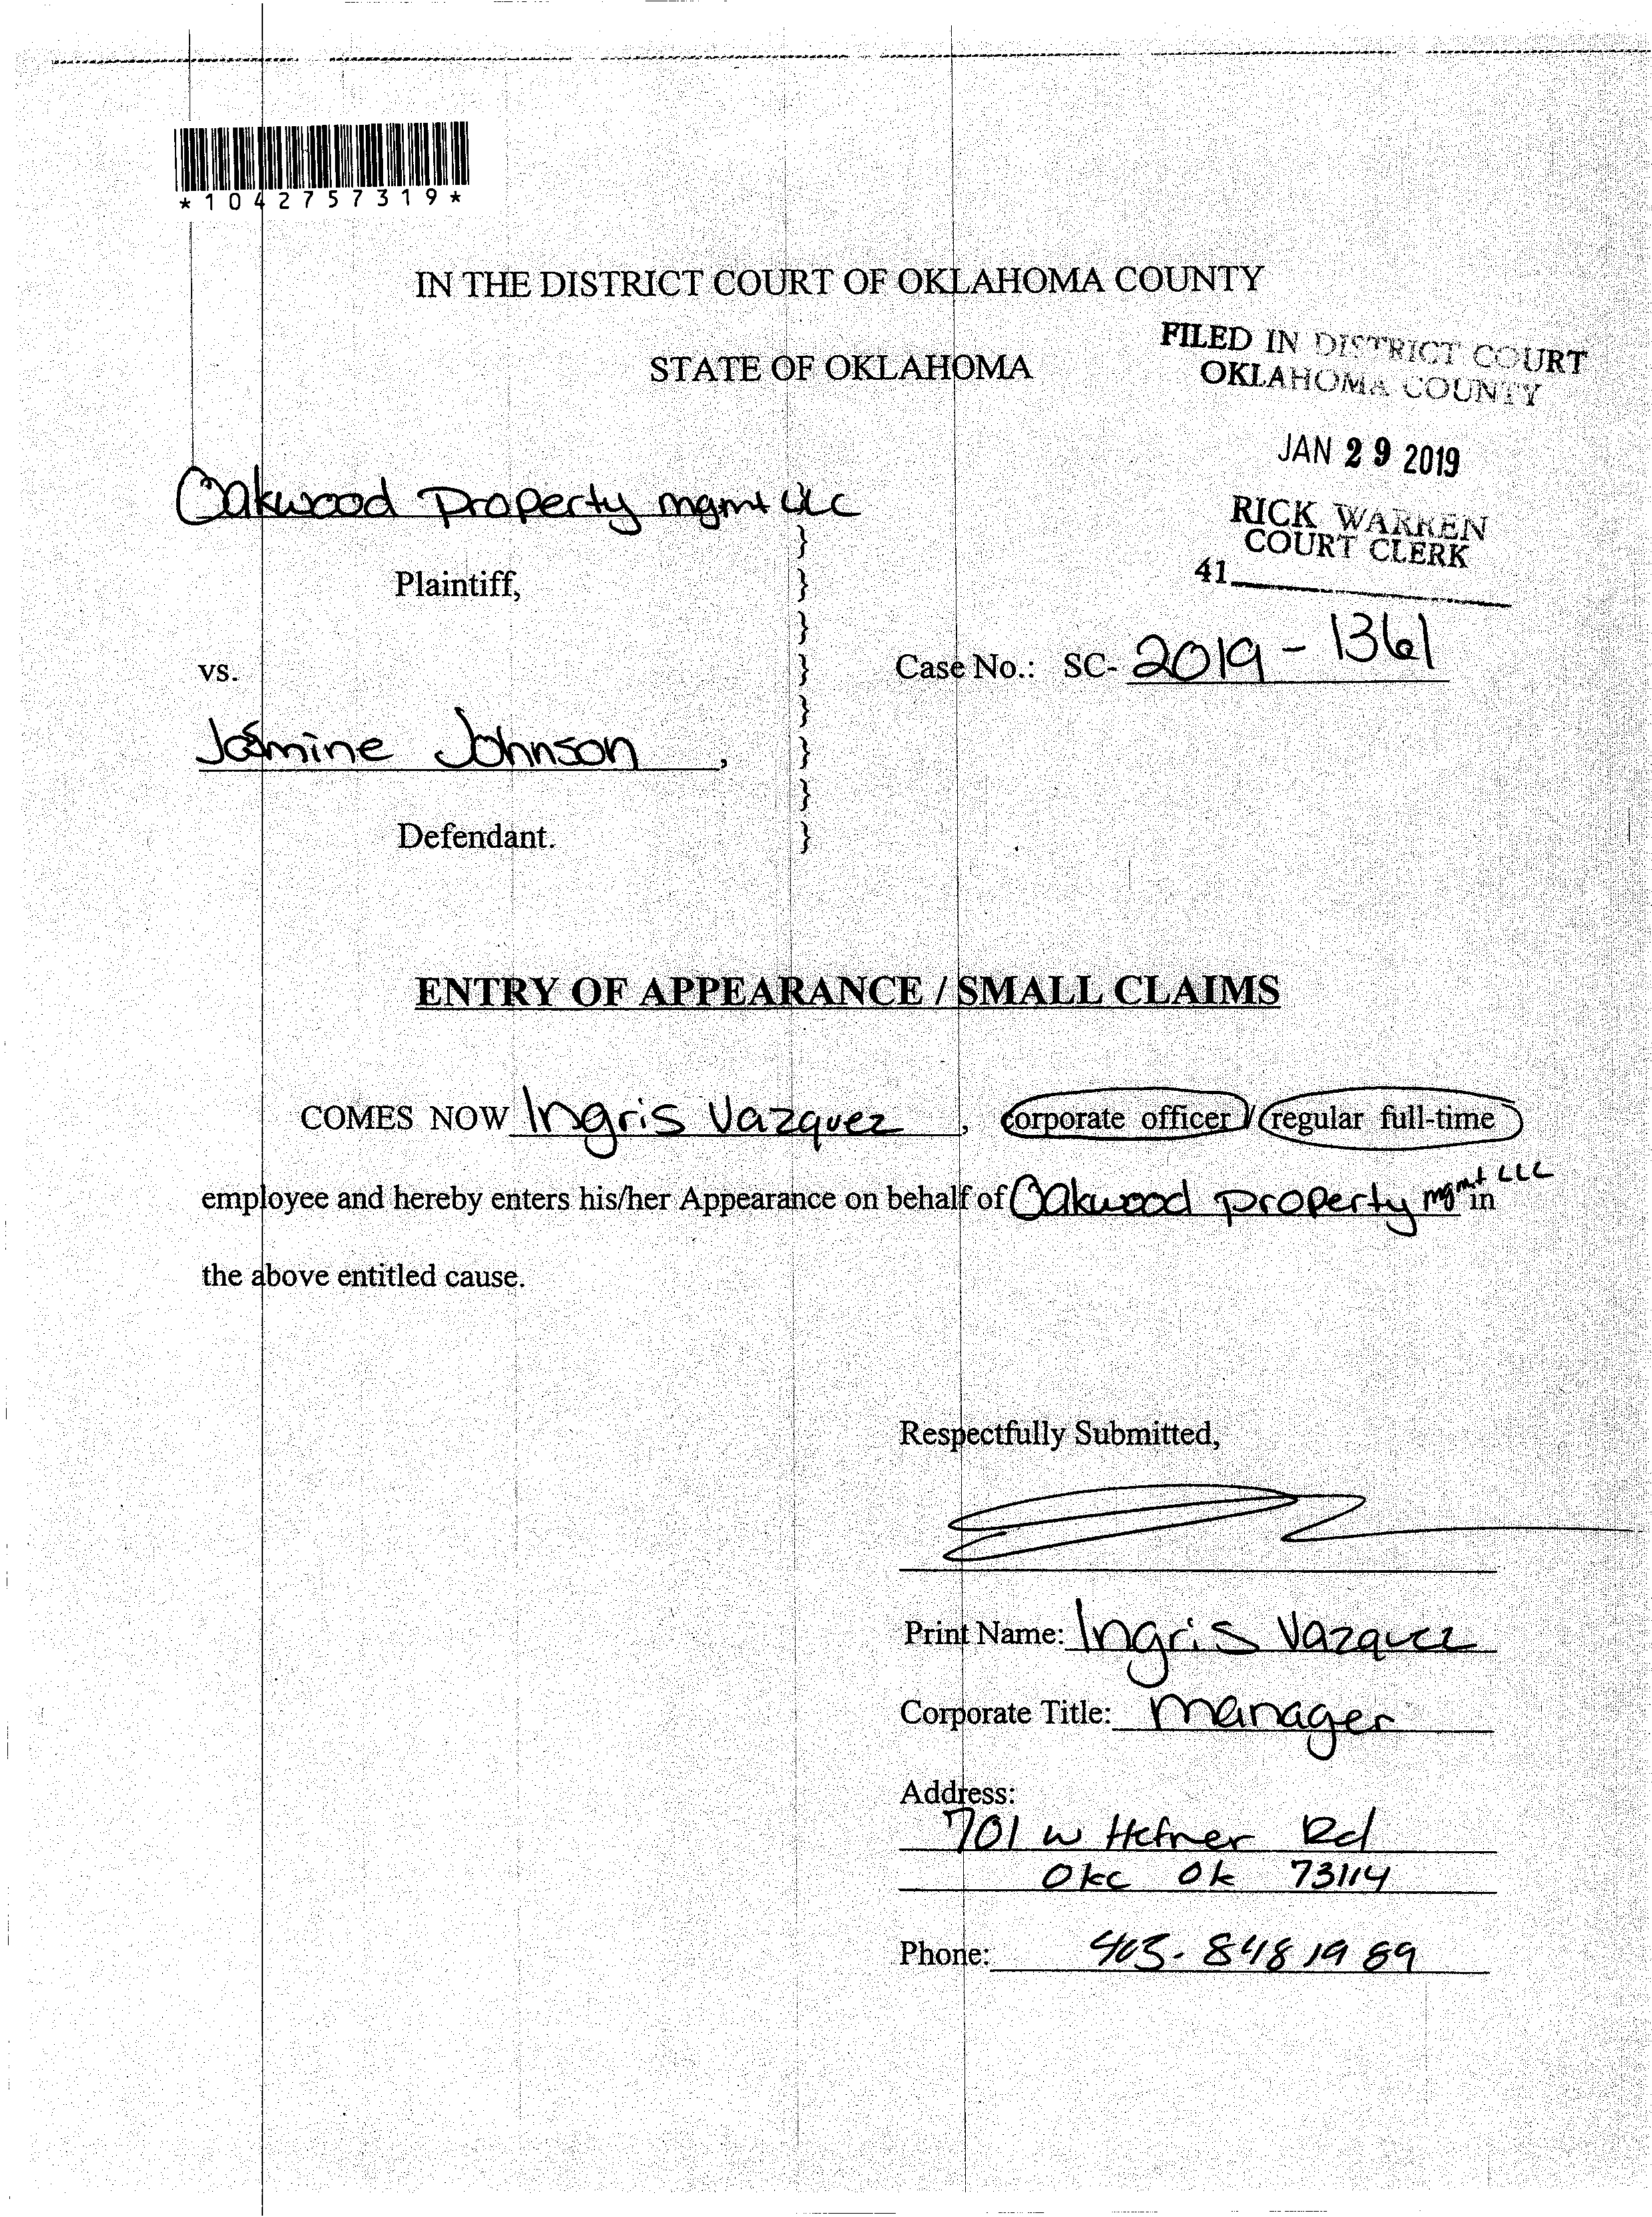 *1042757319*
IN THE DISTRICT COURT OF OKLAHOMA COUNTY
STATE OF OKLAHOMA
FILED IN DISTRICT COURT
OKLAHOMA COUNTY
JAN 29 2019
RICK WARREN
COURT CLERK
41
Oakwood Property mgmt LLC
}
Plaintiff, }
}
vs. } Case No.: SC- 2019-1361
}
Jasmine Johnson, }
}
Defendant. }
ENTRY OF APPEARANCE / SMALL CLAIMS
COMES NOW Ingris Vazquez, corporate officer / regular full-time
employee and hereby enters his/her Appearance on behalf of Oakwood property mgmt LLC in
the above entitled cause.
Respectfully Submitted,
Print Name: Ingris Vazquez
Corporate Title: manager
Address:
701 w Hefner Rd
Okc Ok 73114
Phone: 405-848 1989